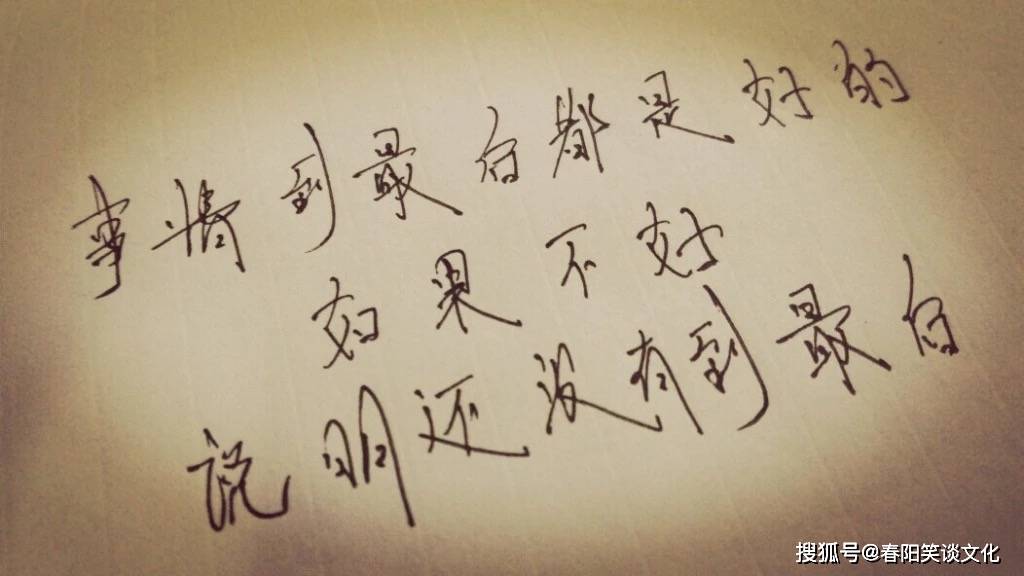 事情到最后都是好的
如果不好
说明还没有到最后
搜狐号@春阳笑谈文化